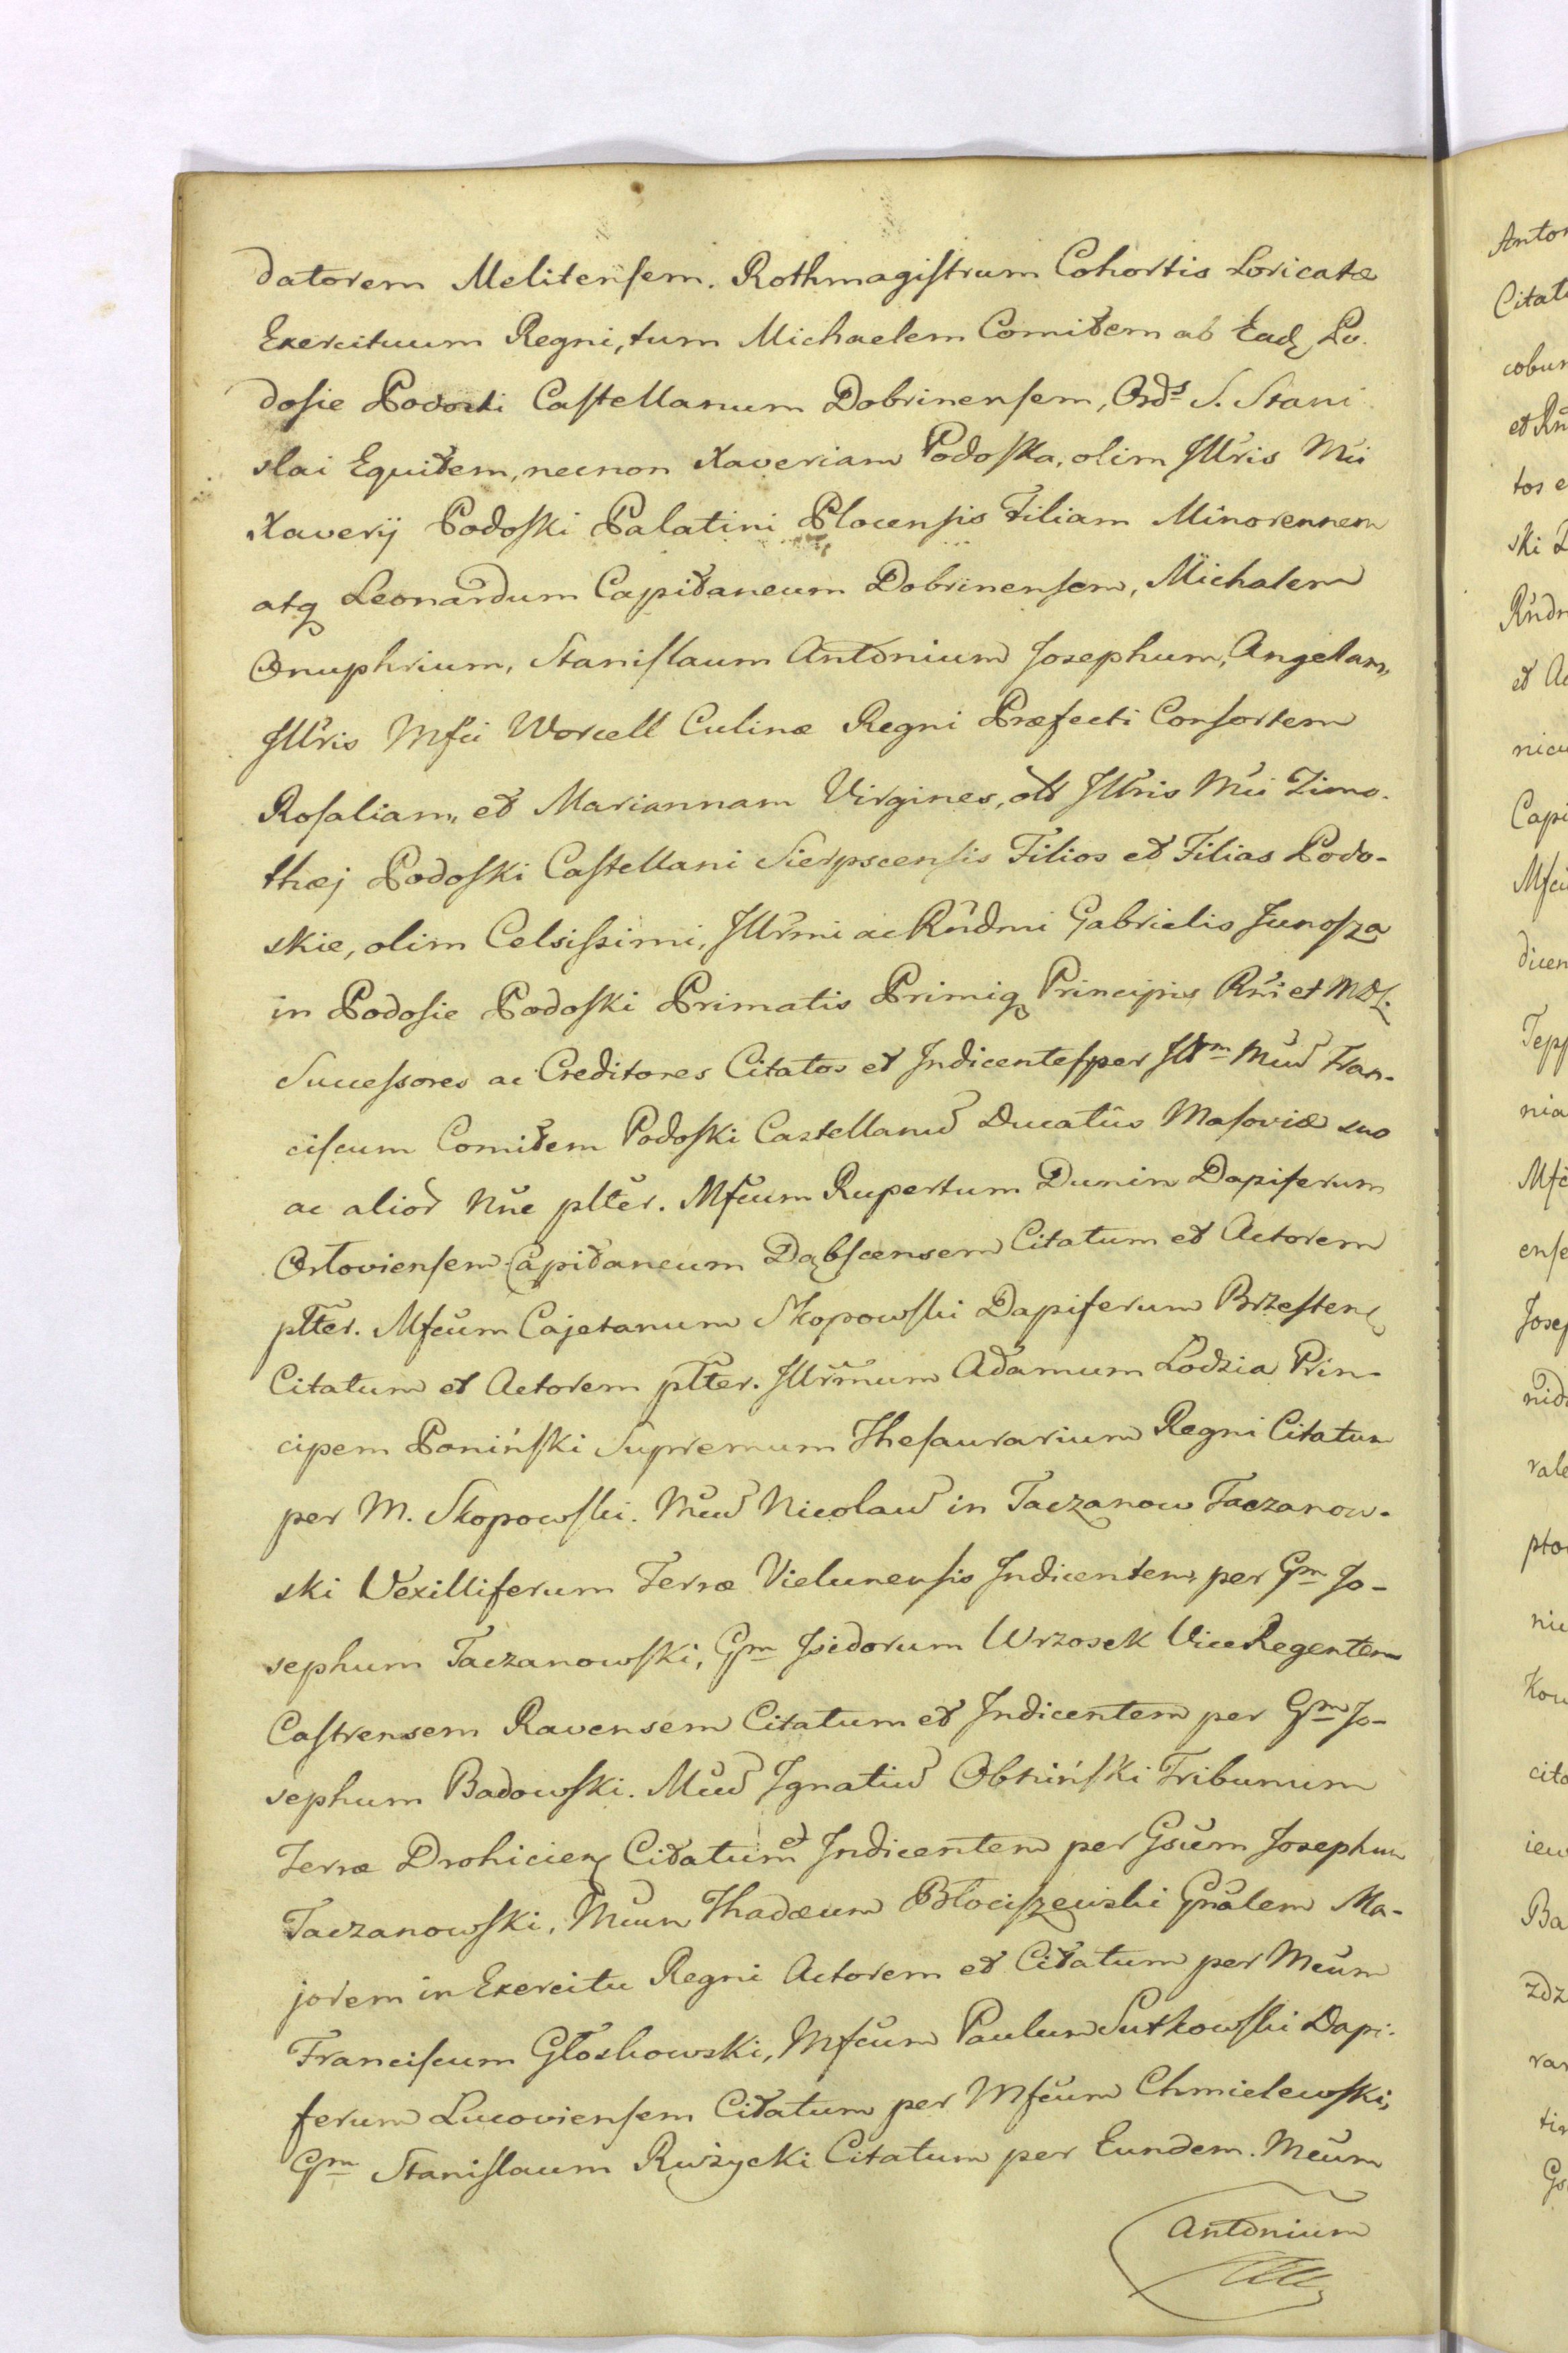 datorem Melitensem. Rothmagistrum Cohortis Loricatæ
Exercituum Regni, tum Michaelem Comitem ab Ead Po.
dosie Podoski Castellanum Dobrinensem, Ords S. Stani
slai Equitem, necnon Xaveriam Podoska, olim Illris Mci
Xaverij Podoski Palatini Plocensis Filiam Minorennem
atq Leonardum Capitaneum Dobrinensem, Michalem
Onuphrium, Stanislaum Antonium Josephum, Angelam,
Illris Mfci Worcell Culinæ Regni Præfecti Consortem
Rosaliam, et Mariannam Virgines, olt Illris Mci Timo.
thæj Podoski Castellani Sierpscensis Filios et Filias Podo-
skie, olim Celsissimi, Illrmi ac Rndmi Gabrielis Junosza
in Podosie Podoski Primatis Primiq Principis Rni et MDL.
Successores ac Creditores Citatos et Indicentes per Illm Mcu Fran-
ciscum Comitem Podoski Castellanu Ducatûs Masoviæ suo
ac alior Nne plter. Mfcum Rupertum Dunin Dapiferum
Orłoviensem Capitaneum Dąbscensem Citatum et Actorem
plter. Mfcum Cajetanum Skopowski Dapiferum Brzesten
Citatum et Actorem plter. Illrmum Adamum Lodzia Prin-
cipem Poniński Supremum Thesaurarium Regni Citatum
per M. Skopowski. Mcu Nicolau in Taczanow Taczanow-
ski Vexilliferum Terræ Vielunensis Indicentem per Gm Jo-
sephum Taczanowski, Gm Isidorum Wrzosek ViceRegentem
Castrensem Ravensem Citatum et Indicentem per Gm Jo-
sephum Badowski. Mcu Ignatiu Obniński Tribunum
Terræ Drohicien Citatum et Indicentem per Gsum Josephum
Taczanowski, Mcum Thadæum Błociszewski Gnalem Ma-
jorem in Exercitu Regni Actorem et Citatum per Mcum
Franciscum Głoskowski, Mfcum Paulum Sutkowski Dapi-
ferum Lucoviensem Citatum per Mfcum Chmielewski,
Gm Stanislaum Rużycki Citatum per Eundem. Mcum
Antonium